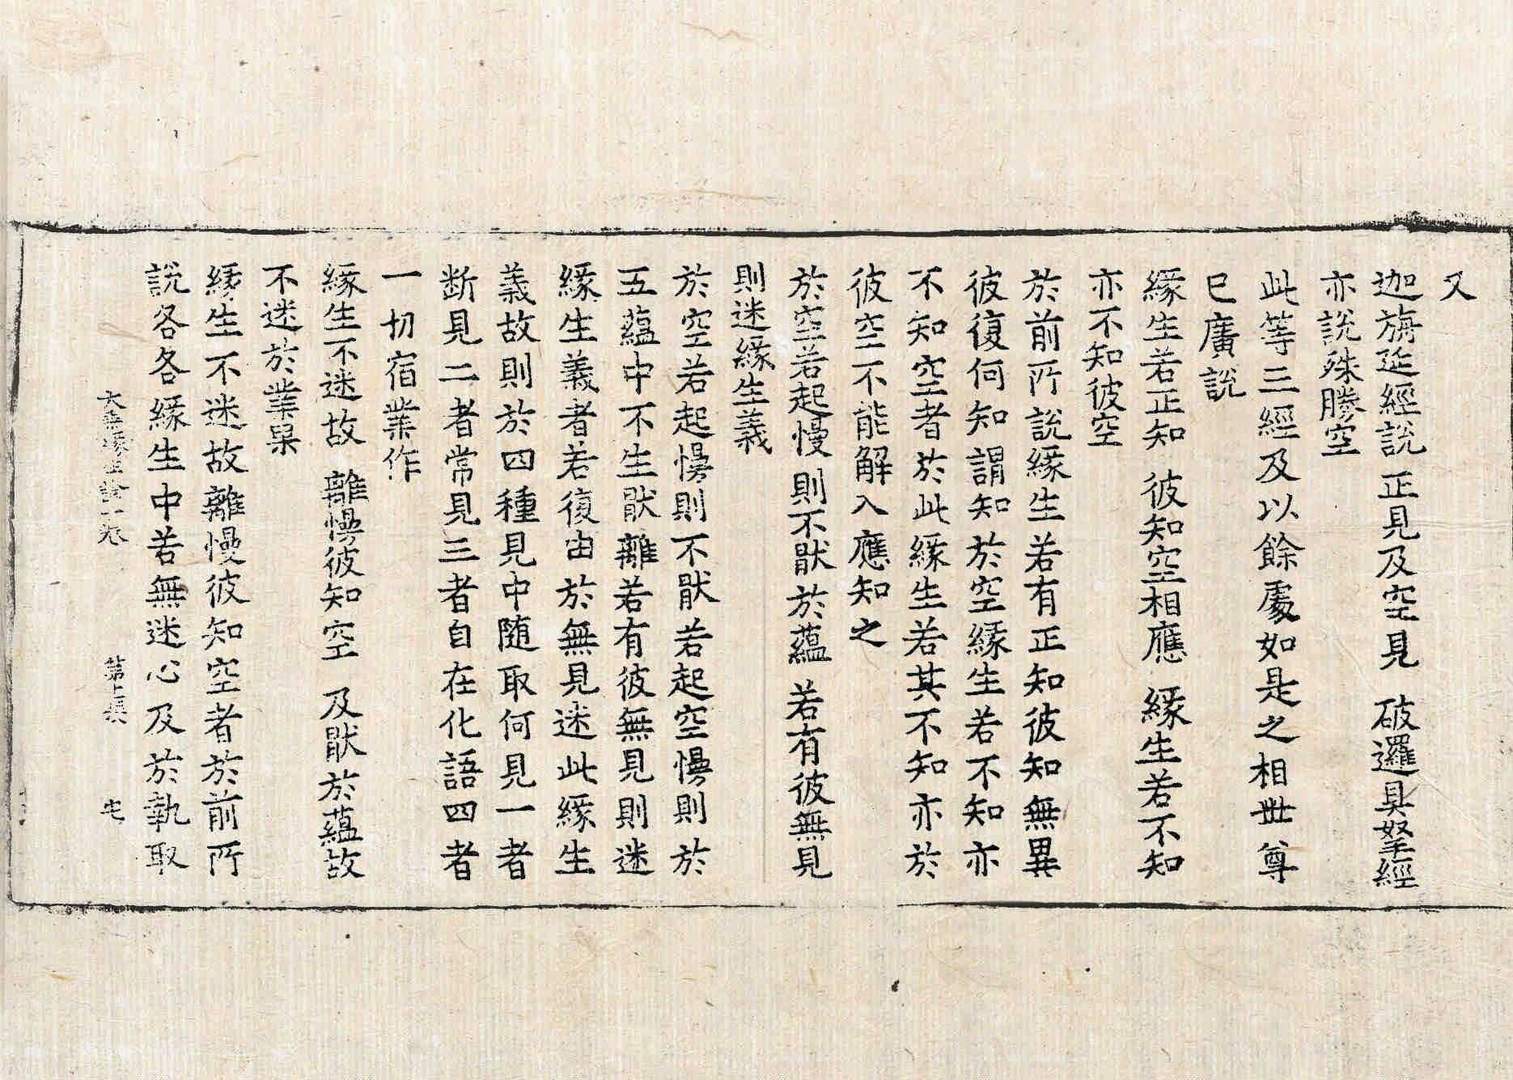 又
迦旃延經説 正見及空見 破邏具拏經
亦説殊勝空
此等三經及以餘處如是之相世尊
已廣説
緣生若正知 彼知空相應 緣生若不知
亦不知彼空
於前所説緣生若有正知彼知無異
彼復何知謂知於空緣生若不知亦
不知空者於此緣生若其不知亦於
彼空不能解入應知之
於空若起慢 則不猒於蘊 若有彼無見
則迷緣生義
於空若起慢則不猒若起空慢則於
五蘊中不生猒離若有彼無見則迷
緣生義者若復由於無見迷此緣生
義故則於四種見中随取何見一者
断見二者常見三者自在化語四者
一切宿業作
緣生不迷故 離慢彼知空 及猒於蘊故
不迷於業果
緣生不迷故離慢彼知空者於前所
説各各緣生中若無迷心及於執取
大乘緣生論一卷 第十張 宅